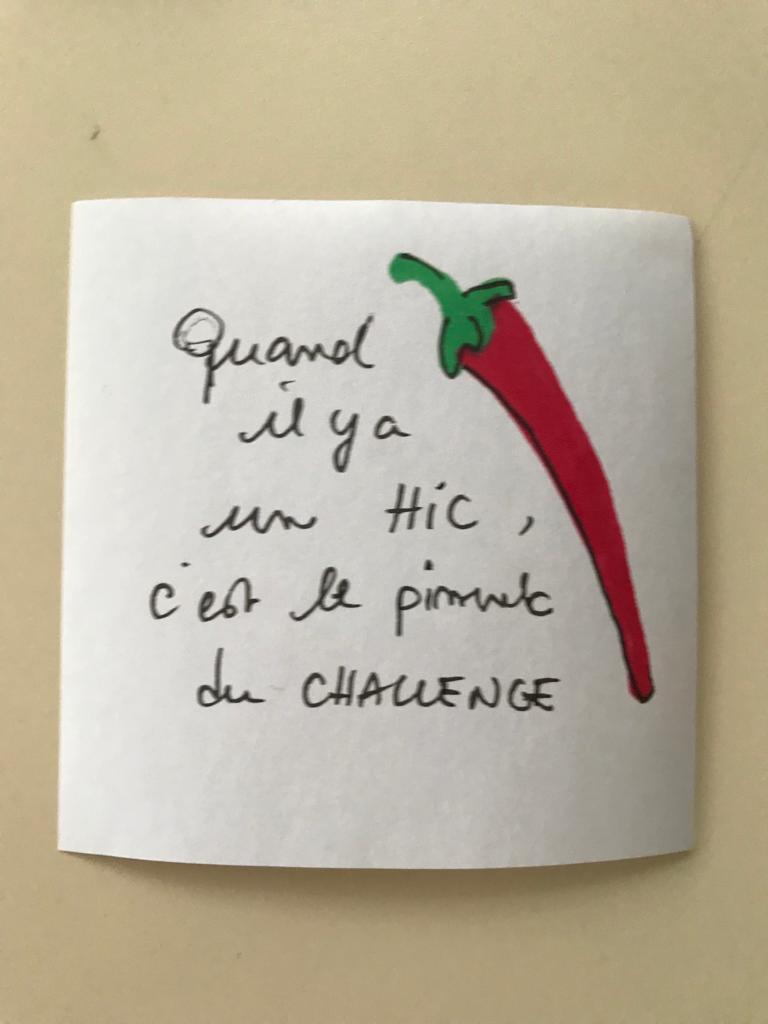 Quand
il y a
un HiC,
c'est le piment
du CHALLENGE